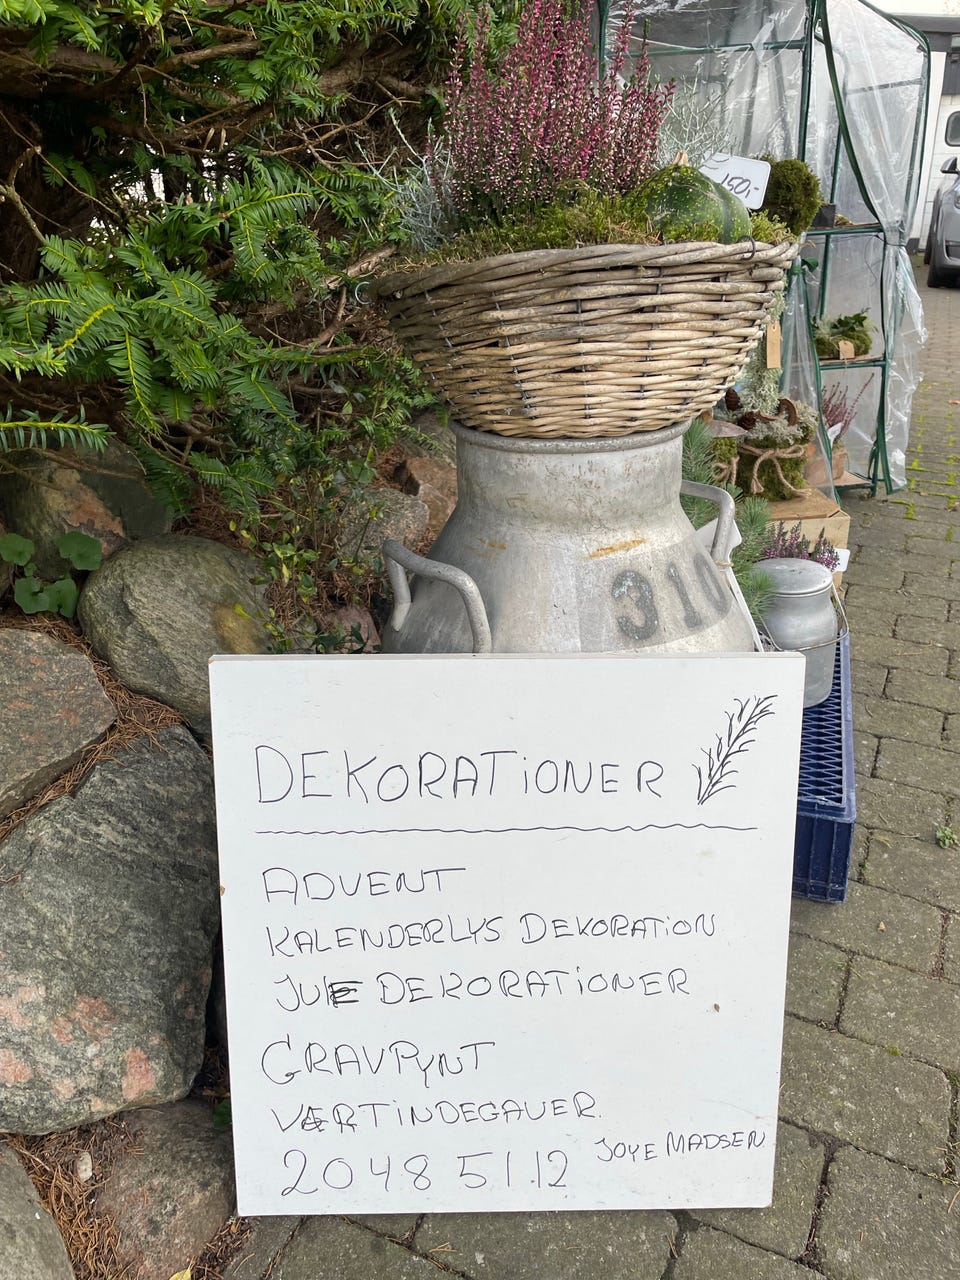 150,-
310
DEKORATiONER
ADVENT
KALENDERLYS DEKORATiON
JULE DEKORATiONER
GRAVPYNT
VÆRTiNDEGAVER.
2048 51.12 JOYE MADSEN